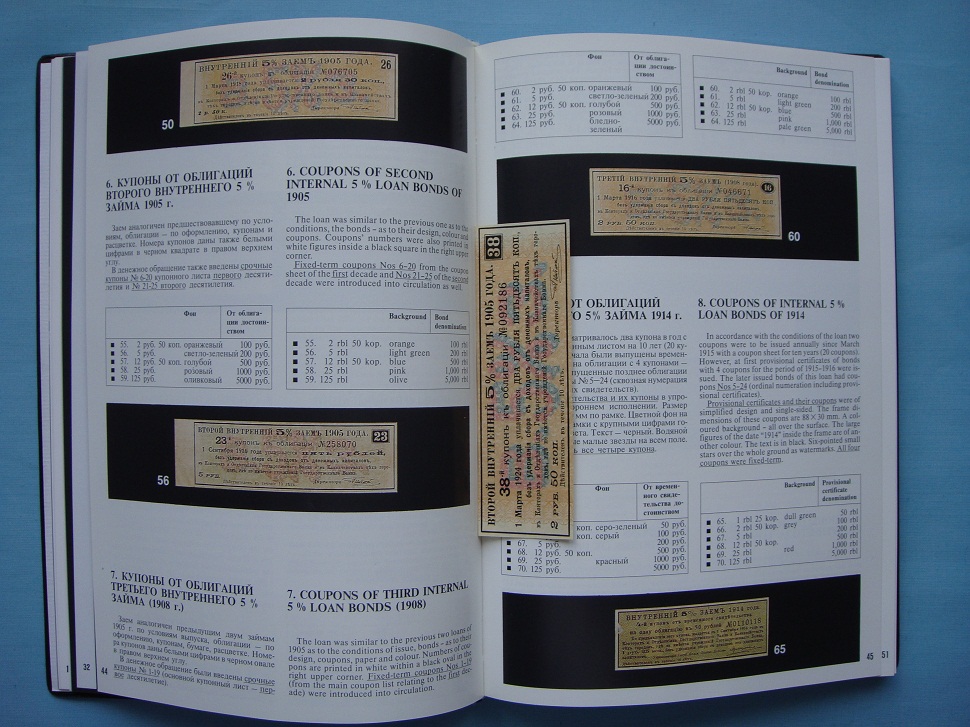 ВНУТРЕННІЙ 5% ЗАЕМЪ 1905 ГОДА.
26
26й купонъ къ облигаціи №076705
50
6. КУПОНЫ ОТ ОБЛИГАЦИЙ
ВТОРОГО ВНУТРЕННЕГО 5 %
ЗАЙМА 1905 г.
Заем аналогичен предшествовавшему по усло-
виям, облигации — по оформлению, купонам и
расцветке. Номера купонов даны также белыми
цифрами в черном квадрате в правом верхнем
углу.
В денежное обращение также введены срочные
купоны № 6-20 купонного листа первого десяти-
летия и № 21-25 второго десятилетия.
6. COUPONS OF SECOND
INTERNAL 5 % LOAN BONDS OF
1905
The loan was similar to the previous one as to the
conditions, the bonds – as to their design, colour and
coupons. Coupons' numbers were also printed in
white figures inside a black square in the right upper
corner.
Fixed-term coupons Nos 6–20 from the coupon
sheet of the first decade and Nos 21–25 of the second
decade were introduced into circulation as well.
Фон От облига-
ции достоин-
ством
55. 2 руб. 50 коп. оранжевый 100 руб.
56. 5 руб. светло-зеленый 200 руб.
57. 12 руб. 50 коп. голубой 500 руб.
58. 25 руб. розовый 1000 руб.
59. 125 руб. оливковый 5000 руб.
Background Bond
denomination
55. 2 rbl 50 kop. orange 100 rbl
56. 5 rbl light green 200 rbl
57. 12 rbl 50 kop. blue 500 rbl
58. 25 rbl pink 1,000 rbl
59. 125 rbl olive 5,000 rbl
ВТОРОЙ ВНУТРЕННІЙ 5% ЗАЕМЪ 1905 ГОДА.
23
23й купонъ къ облигаціи №258070
56
7. КУПОНЫ ОТ ОБЛИГАЦИЙ
ТРЕТЬЕГО ВНУТРЕННЕГО 5 %
ЗАЙМА (1908 г.)
Заем аналогичен предыдущим двум займам
1905 г. по условиям выпуска, облигации — по
оформлению, купонам, бумаге, расцветке. Номе-
ра купонов даны белыми цифрами в черном овале
в правом верхнем углу.
В денежное обращение были введены срочные
купоны № 1-19 (основной купонный лист — пер-
вое десятилетие).
7. COUPONS OF THIRD INTERNAL
5 % LOAN BONDS (1908)
The loan was similar to the previous two loans of
1905 as to the conditions of issue, bonds – as to their
design, coupons, paper and colour. Numbers of cou-
pons are printed in white within a black oval in the
right upper corner. Fixed-term coupons Nos 1–19
(from the main coupon list relating to the first dec-
ade) were introduced into circulation.
1 32 44
ВТОРОЙ ВНУТРЕННІЙ 5% ЗАЕМЪ 1905 ГОДА.
38
38-й купонъ къ облигаціи №092186
1 Марта 1924 года уплачивается ДВА РУБЛЯ ПЯТЬДЕСЯТЪ КОП.,
безъ удержанія сбора съ доходовъ отъ денежныхъ капиталовъ,
2 РУБ. 50 КОП.
Директоръ
Дѣйствителенъ въ теченіе 10 лѣтъ.
Фон От облига-
ции достоин-
ством
60. 2 руб. 50 коп. оранжевый 100 руб.
61. 5 руб. светло-зеленый 200 руб.
62. 12 руб. 50 коп. голубой 500 руб.
63. 25 руб. розовый 1000 руб.
64. 125 руб. бледно-
зеленый 5000 руб.
Background Bond
denomination
60. 2 rbl 50 kop. orange 100 rbl
61. 5 rbl light green 200 rbl
62. 12 rbl 50 kop. blue 500 rbl
63. 25 rbl pink 1,000 rbl
64. 125 rbl pale green 5,000 rbl
ТРЕТІЙ ВНУТРЕННІЙ 5% ЗАЕМЪ (1908 года).
16
16й купонъ къ облигаціи №046671
60
ОТ ОБЛИГАЦИЙ
5% ЗАЙМА 1914 г.
атривалось два купона в год с
листом на 10 лет (20 ку-
чала были выпущены времен-
на облигации с 4 купонами —
пущенные позднее облигации
№ 5—24 (сквозная нумерация
их свидетельств).
тельства и их купоны в упро-
роннем исполнении. Размер
мм по рамке. Цветной фон на
мки с крупными цифрами го-
ета. Текст — черный. Водяной
ые малые звезды на всем поле.
все четыре купона.
8. COUPONS OF INTERNAL 5 %
LOAN BONDS OF 1914
In accordance with the conditions of the loan two
coupons were to be issued annually since March
1915 with a coupon sheet for ten years (20 coupons).
However, at first provisional certificates of bonds
with 4 coupons for the period of 1915–1916 were is-
sued. The later issued bonds of this loan had cou-
pons Nos 5–24 (ordinal numeration including provi-
sional certificates).
Provisional certificates and their coupons were of
simplified design and single-sided. The frame di-
mensions of these coupons are 88 × 30 mm. A col-
oured background – all over the surface. The large
figures of the date "1914" inside the frame are of an-
other colour. The text is black. Six-pointed small
stars over the whole ground as watermarks. All four
coupons were fixed-term.
Фон От времен-
ного свиде-
тельства до-
стоинством
коп. серо-зеленый 50 руб.
коп. серый 100 руб.
67. 5 руб. 200 руб.
68. 12 руб. 50 коп. 500 руб.
69. 25 руб. красный 1000 руб.
70. 125 руб. 5000 руб.
Background Provisional
certificate
denomination
65. 1 rbl 25 kop. dull green 50 rbl
66. 2 rbl 50 kop. grey 100 rbl
67. 5 rbl 200 rbl
68. 12 rbl 50 kop. 500 rbl
69. 25 rbl red 1,000 rbl
70. 125 rbl 5,000 rbl
ВНУТРЕННІЙ 5% ЗАЕМЪ 1914 года.
65
45 51